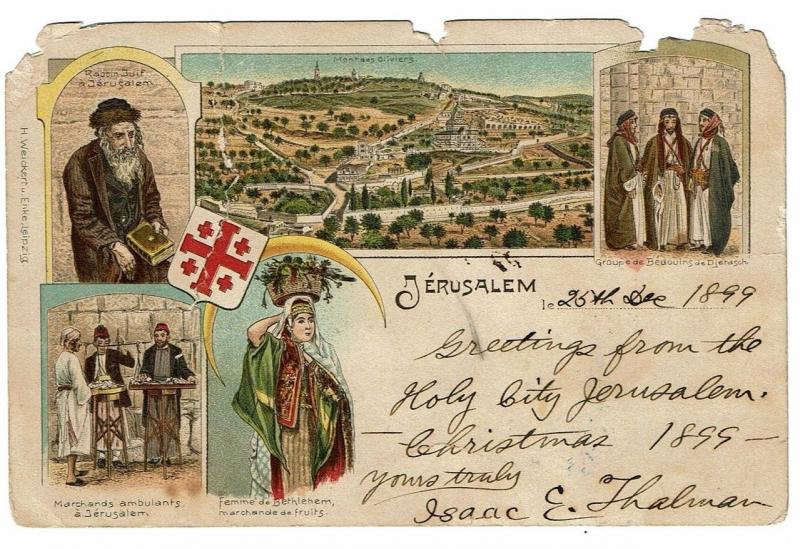 Rabbin Juif
à Jérusalem
Mont des Oliviers
Groupe de Bédouins de Djerasch
H. Weickert u. Enke, Leipzig
JÉRUSALEM
le 25th Dec 1899
Greetings from the
Holy City Jerusalem.
— Christmas 1899 —
yours truly
Isaac E. Thalman
Marchands ambulants
à Jérusalem.
Femme de Bethlehem,
marchande de fruits.